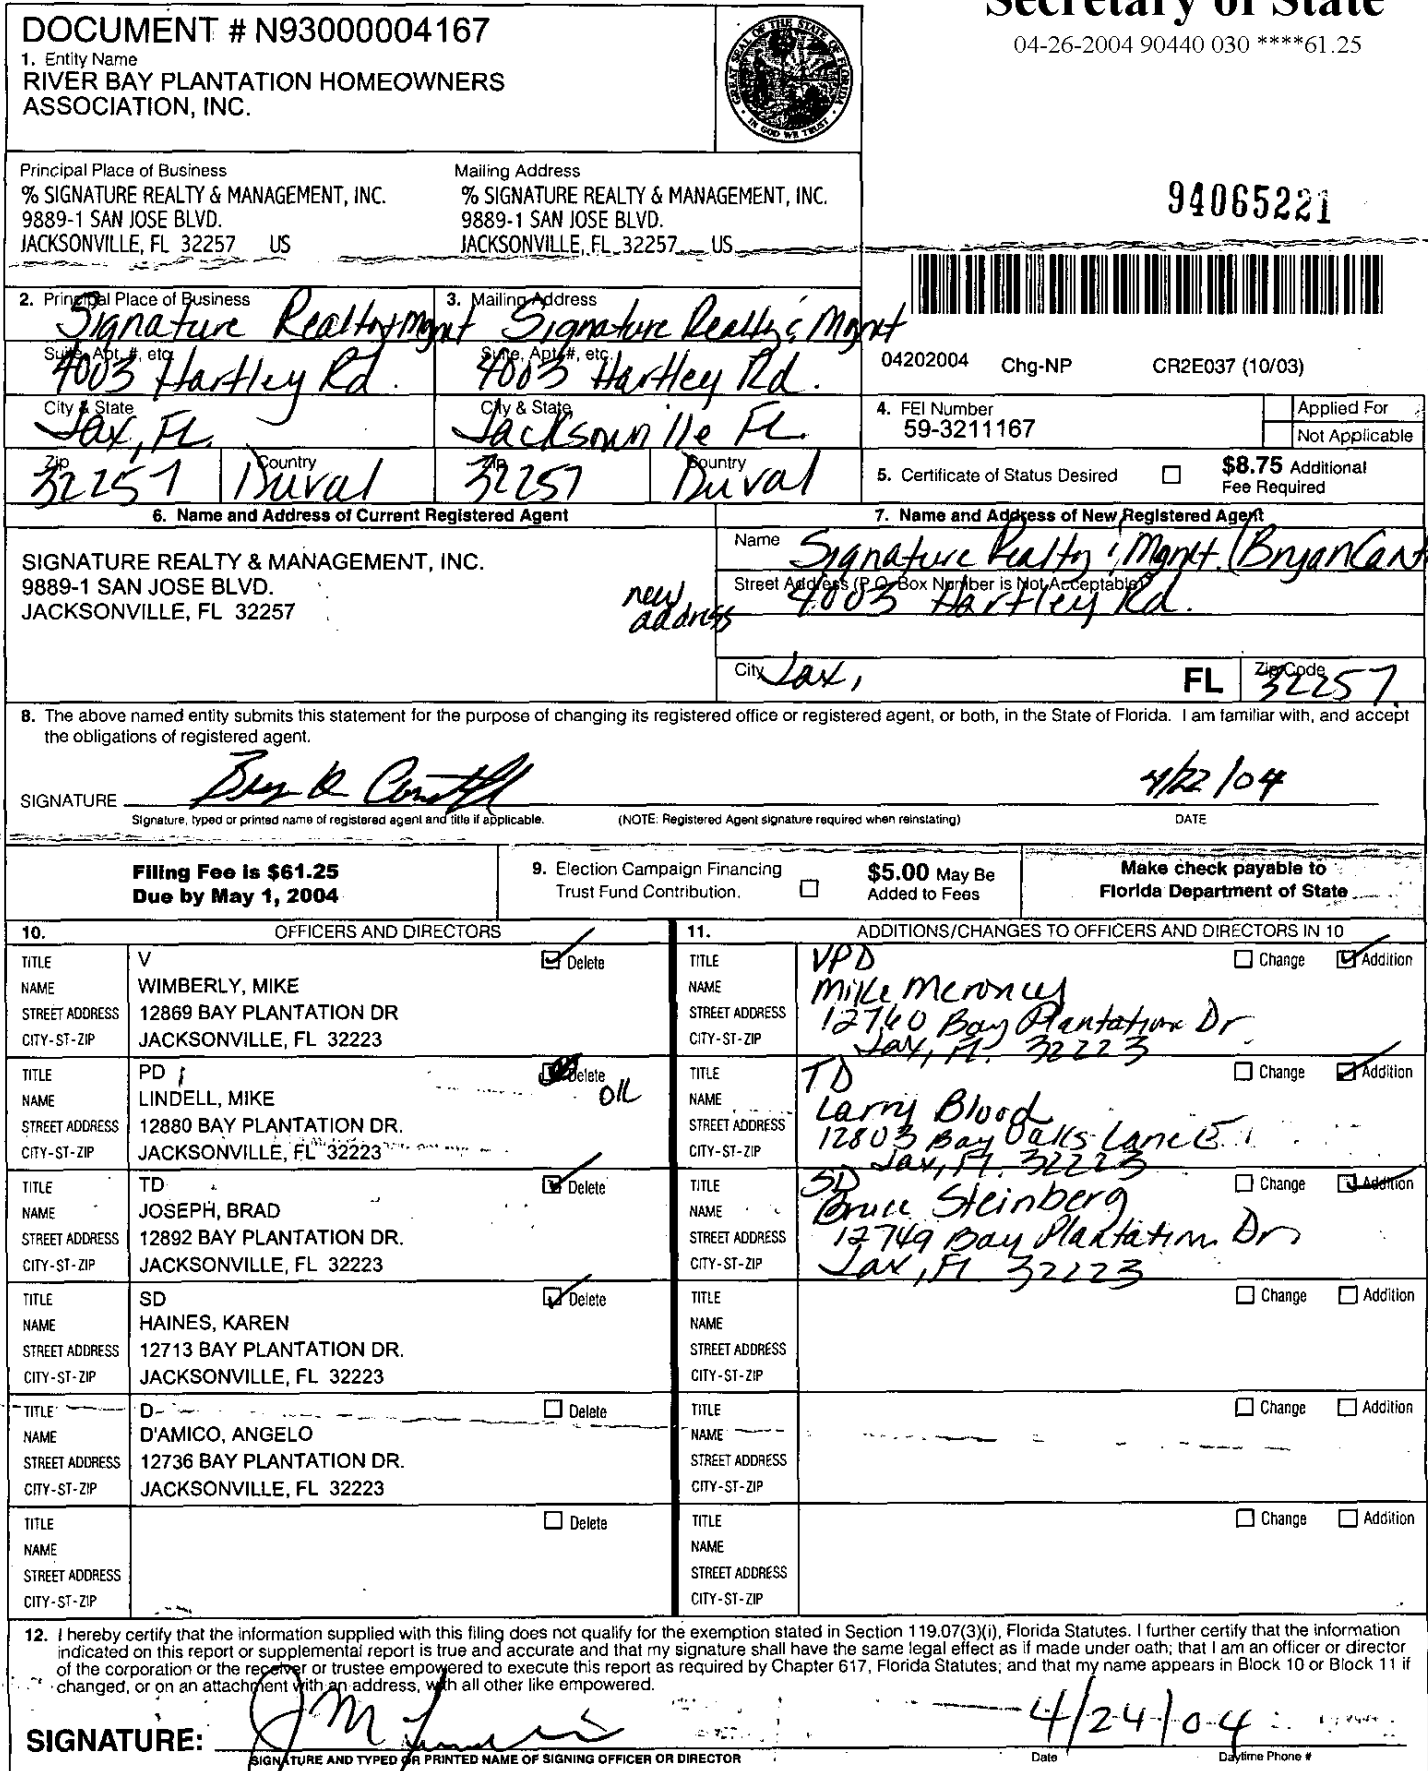 Secretary of State
04-26-2004 90440 030 ****61.25
DOCUMENT # N93000004167
1. Entity Name
RIVER BAY PLANTATION HOMEOWNERS
ASSOCIATION, INC.
GREAT SEAL OF THE STATE OF FLORIDA
IN GOD WE TRUST
Principal Place of Business
% SIGNATURE REALTY & MANAGEMENT, INC.
9889-1 SAN JOSE BLVD.
JACKSONVILLE, FL 32257 US
Mailing Address
% SIGNATURE REALTY & MANAGEMENT, INC.
9889-1 SAN JOSE BLVD.
JACKSONVILLE, FL 32257 US
94065221
2. Principal Place of Business
Signature Realty & Mgmt
Suite, Apt. #, etc.
4003 Hartley Rd.
City & State
Jax, FL.
Zip
32257
Country
Duval
3. Mailing Address
Signature Realty & Mgmt
Suite, Apt. #, etc.
4003 Hartley Rd.
City & State
Jacksonville FL
Zip
32257
Country
Duval
04202004 Chg-NP CR2E037 (10/03)
4. FEI Number
59-3211167
Applied For
Not Applicable
5. Certificate of Status Desired
$8.75 Additional
Fee Required
6. Name and Address of Current Registered Agent
SIGNATURE REALTY & MANAGEMENT, INC.
9889-1 SAN JOSE BLVD.
JACKSONVILLE, FL 32257
new
address
7. Name and Address of New Registered Agent
Name
Signature Realty & Mgmt. (Bryan Cant
Street Address (P.O. Box Number is Not Acceptable)
4003 Hartley Rd.
City
Jax,
FL
Zip Code
32257
8. The above named entity submits this statement for the purpose of changing its registered office or registered agent, or both, in the State of Florida. I am familiar with, and accept
the obligations of registered agent.
SIGNATURE
4/22/04
Signature, typed or printed name of registered agent and title if applicable.
(NOTE: Registered Agent signature required when reinstating)
DATE
Filing Fee is $61.25
Due by May 1, 2004
9. Election Campaign Financing
Trust Fund Contribution.
$5.00 May Be
Added to Fees
Make check payable to
Florida Department of State
10. OFFICERS AND DIRECTORS
TITLE V Delete
NAME WIMBERLY, MIKE
STREET ADDRESS 12869 BAY PLANTATION DR
CITY-ST-ZIP JACKSONVILLE, FL 32223
TITLE PD Delete
NAME LINDELL, MIKE
STREET ADDRESS 12880 BAY PLANTATION DR.
CITY-ST-ZIP JACKSONVILLE, FL 32223
TITLE TD Delete
NAME JOSEPH, BRAD
STREET ADDRESS 12892 BAY PLANTATION DR.
CITY-ST-ZIP JACKSONVILLE, FL 32223
TITLE SD Delete
NAME HAINES, KAREN
STREET ADDRESS 12713 BAY PLANTATION DR.
CITY-ST-ZIP JACKSONVILLE, FL 32223
TITLE D Delete
NAME D'AMICO, ANGELO
STREET ADDRESS 12736 BAY PLANTATION DR.
CITY-ST-ZIP JACKSONVILLE, FL 32223
TITLE Delete
NAME
STREET ADDRESS
CITY-ST-ZIP
11. ADDITIONS/CHANGES TO OFFICERS AND DIRECTORS IN 10
TITLE VPD Change Addition
NAME Mike Meroney
STREET ADDRESS 12740 Bay Plantation Dr
CITY-ST-ZIP Jax, Fl. 32223
TITLE TD Change Addition
NAME Larry Blood
STREET ADDRESS 12803 Bay Oaks Lane E
CITY-ST-ZIP Jax, Fl. 32223
TITLE SD Change Addition
NAME Bruce Steinberg
STREET ADDRESS 12749 Bay Plantation Dr
CITY-ST-ZIP Jax, Fl. 32223
TITLE Change Addition
NAME
STREET ADDRESS
CITY-ST-ZIP
TITLE Change Addition
NAME
STREET ADDRESS
CITY-ST-ZIP
TITLE Change Addition
NAME
STREET ADDRESS
CITY-ST-ZIP
12. I hereby certify that the information supplied with this filing does not qualify for the exemption stated in Section 119.07(3)(i), Florida Statutes. I further certify that the information
indicated on this report or supplemental report is true and accurate and that my signature shall have the same legal effect as if made under oath; that I am an officer or director
of the corporation or the receiver or trustee empowered to execute this report as required by Chapter 617, Florida Statutes; and that my name appears in Block 10 or Block 11 if
changed, or on an attachment with an address, with all other like empowered.
SIGNATURE:
4/24/04
SIGNATURE AND TYPED OR PRINTED NAME OF SIGNING OFFICER OR DIRECTOR
Date
Daytime Phone #